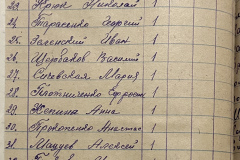 23. Крюк Николай 1
24. Тарасенко Сергей 1
25. Зеленский Иван 1
26. Щербаков Василий 1
27. Сочевская Мария 1
28. Плотниченко Ефросин 1
29. Жепина Анна 1
30. Прокопенко Анастас 1
31. Мацуев Алексей 1